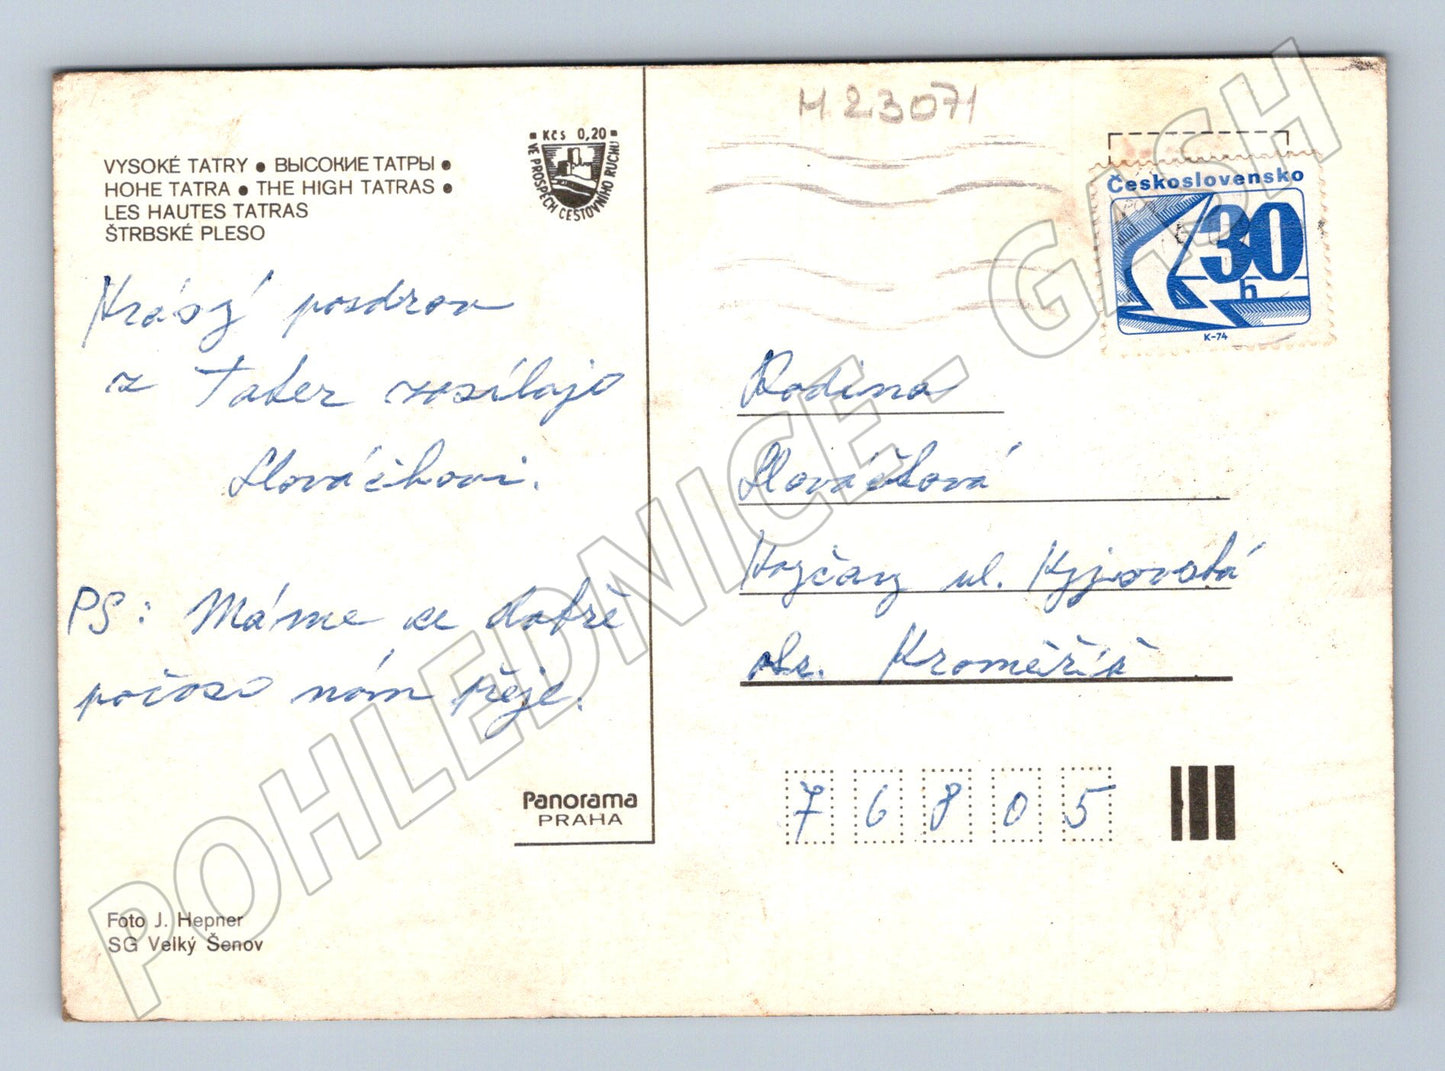 VYSOKÉ TATRY • ВЫСОКИЕ ТАТРЫ •
HOHE TATRA • THE HIGH TATRAS •
LES HAUTES TATRAS
ŠTRBSKÉ PLESO
Kčs 0,20
VE PROSPĚCH CESTOVNÍHO RUCHU
Krásný pozdrav
z Tater zasílajó
Slováčkovi.
PS: Máme se dobře
počaso nám přeje.
Panorama
PRAHA
Foto J. Hepner
SG Velký Šenov
H 23071
Československo
30
h
K-74
Rodina
Slováčková
Koryčany ul. Kyjovská
okr. Kroměříž
76805
POHLEDNICE - GASH